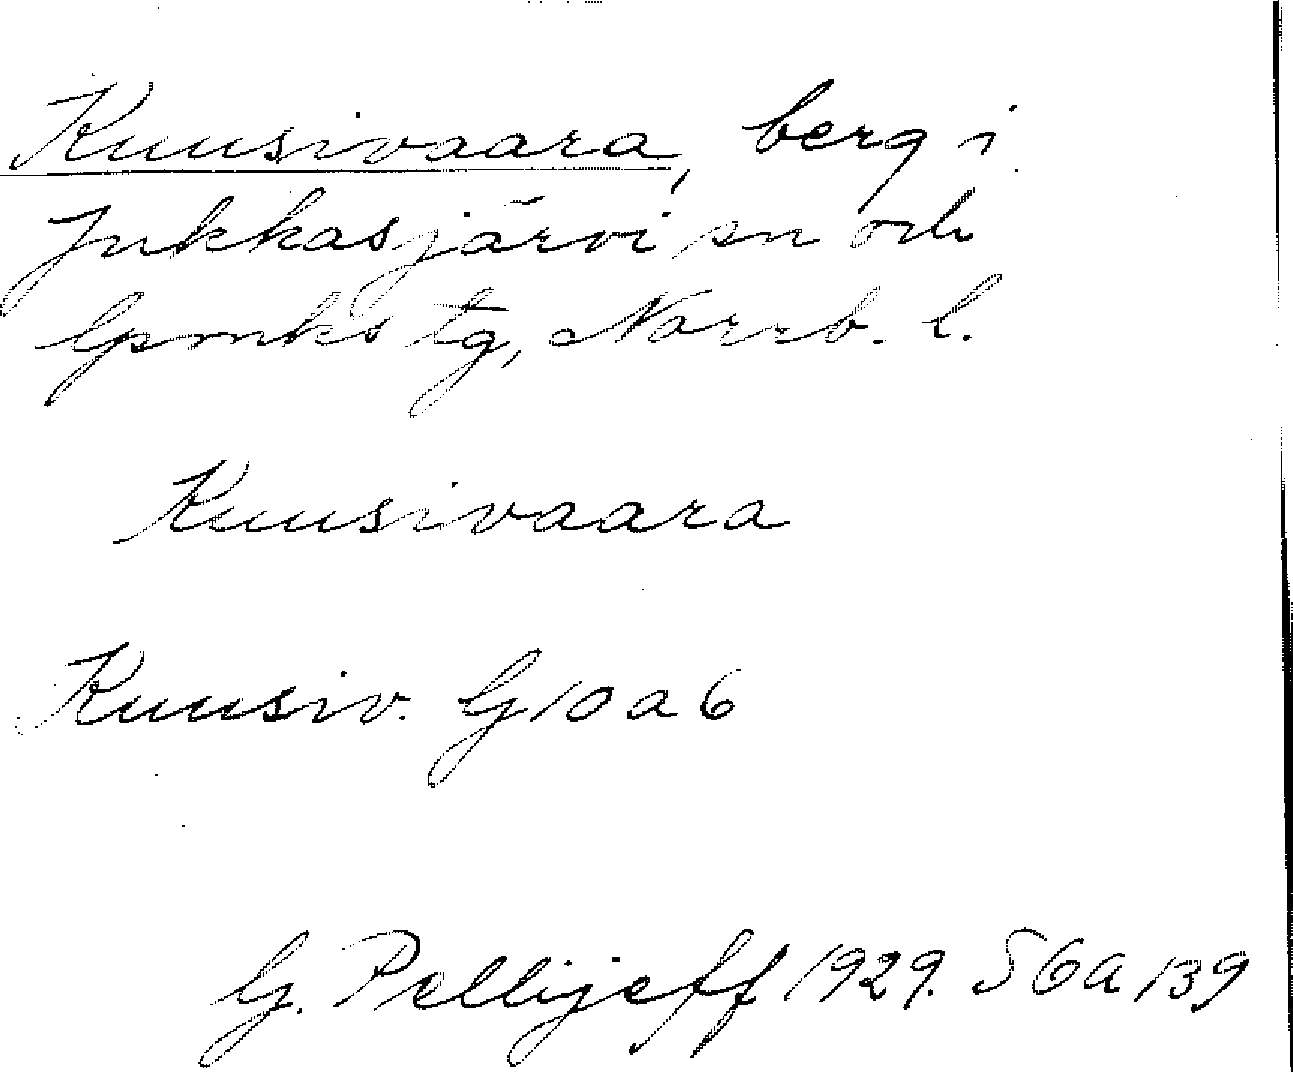 Kuusivaara, berg i
Jukkasjärvi sn och
lpmks tg, Norrb. l.
Kuusivaara
Kuusiv. G 10 a 6
G. Pellijeff 1929. S 6a 139